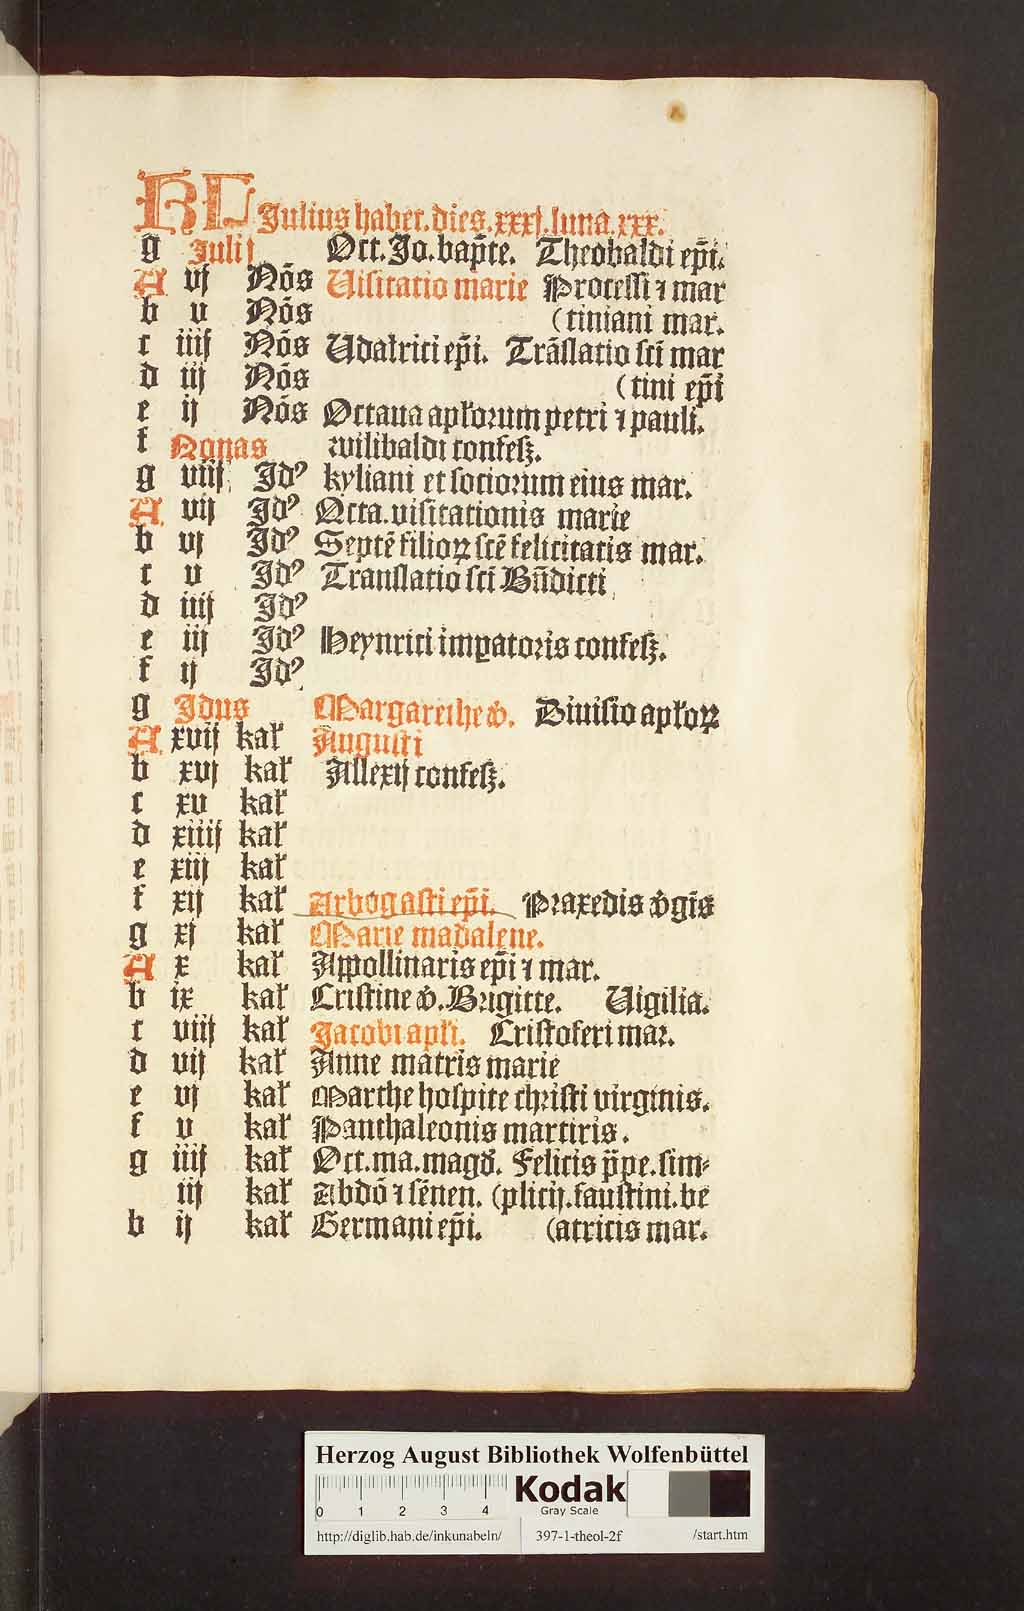 KL Julius habet.dies.xxxj.luna.xxx.
g Julij Oct.Jo.bap̄te. Theobaldi ep̄i.
A vj Nōs Uisitatio marie Processi ⁊ mar
b v Nōs (tiniani mar.
c iiij Nōs Udalrici ep̄i. Trāslatio sc̄i mar
d iij Nōs (tini ep̄i
e ij Nōs Octaua apłorum petri ⁊ pauli.
f Nonas wilibaldi confesꝫ.
g viij Jdꝰ kyliani et sociorum eius mar.
A vij Jdꝰ Octa.visitationis marie
b vj Jdꝰ Septē filioꝝ sc̄e felicitatis mar.
c v Jdꝰ Translatio sc̄i Bn̄dicti
d iiij Jdꝰ
e iij Jdꝰ Heynrici imꝑatoris confesꝫ.
f ij Jdꝰ
g Jdus Margarethe v̄. Diuisio apłoꝝ
A xvij kał Augusti
b xvj kał Allexij confesꝫ.
c xv kał
d xiiij kał
e xiij kał
f xij kał Arbogasti ep̄i. Praxedis v̄gīs
g xj kał Marie madalene.
A x kał Appollinaris ep̄i ⁊ mar.
b ix kał Cristine v̄. Brigitte. Uigilia.
c viij kał Jacobi apłi. Cristoferi mar.
d vij kał Anne matris marie
e vj kał Marthe hospite christi virginis.
f v kał Panthaleonis martiris.
g iiij kał Oct.ma.magd̄. Felicis p̄pe.sim⸗
iij kał Abdō ⁊ sēnen. (plicij.faustini.be
b ij kał Germani ep̄i. (atricis mar.
Herzog August Bibliothek Wolfenbüttel
0 1 2 3 4
Kodak
Gray Scale
http://diglib.hab.de/inkunabeln/ 397-1-theol-2f /start.htm